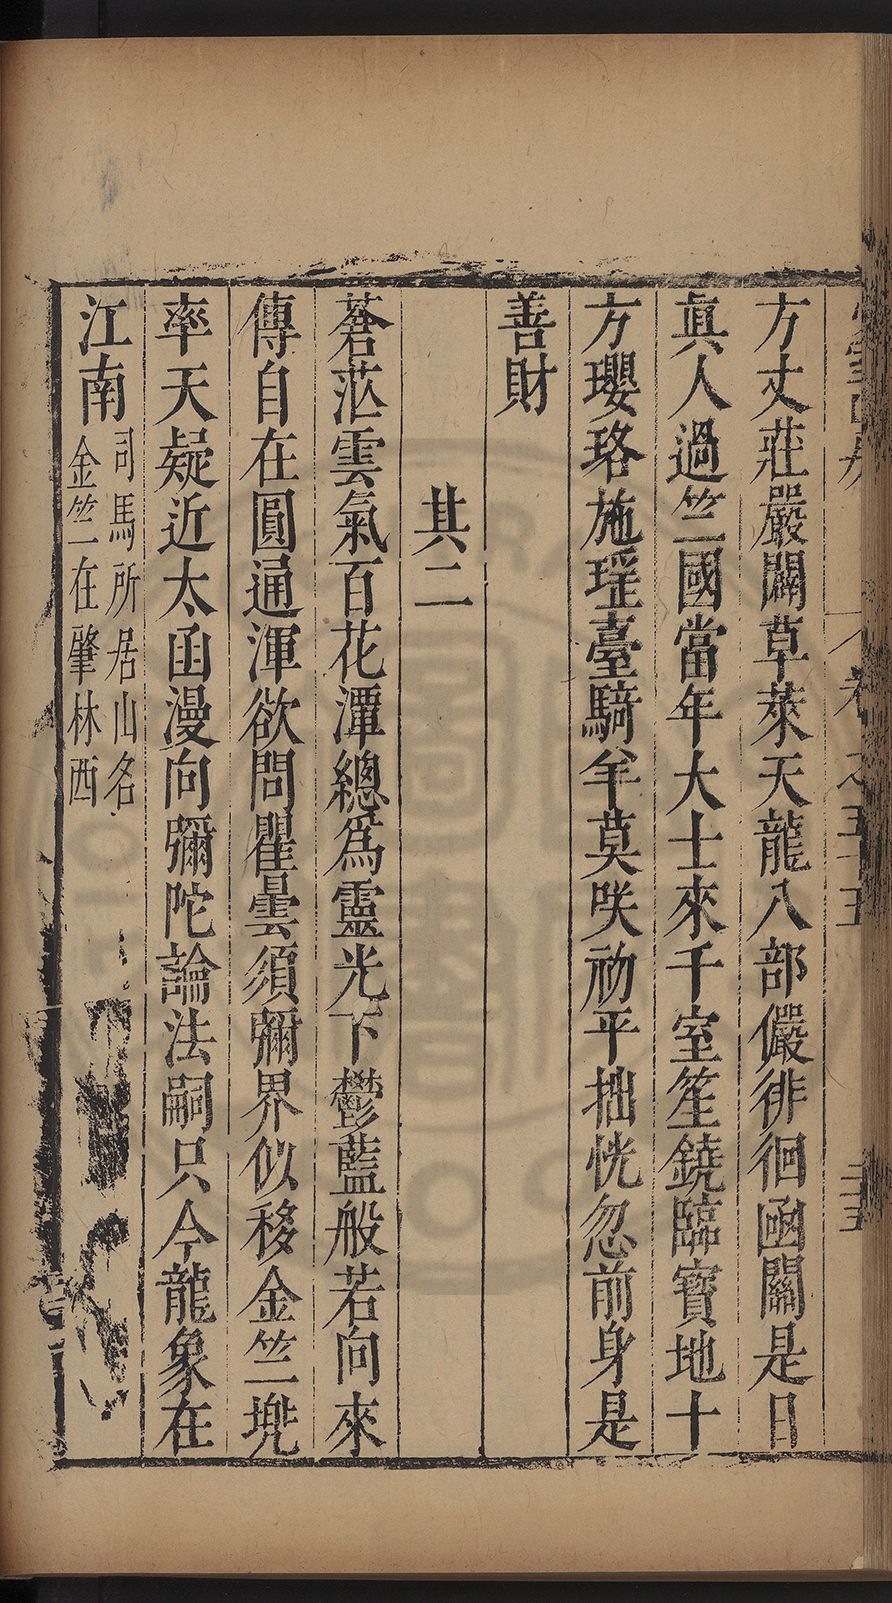 卷之五十五
三五
方丈莊嚴闢草萊天龍八部儼徘徊函關是日
眞人過竺國當年大士來千室笙鐃臨寶地十
方瓔珞施瑤臺騎羊莫咲初平拙恍忽前身是
善財
其二
蒼茫雲氣百花潭總爲靈光下鬱藍般若向來
傳自在圓通渾欲問瞿曇須彌界似移金竺兠
率天疑近太函漫向彌陀論法嗣只今龍象在
江南
司馬所居山名
金竺在肇林西